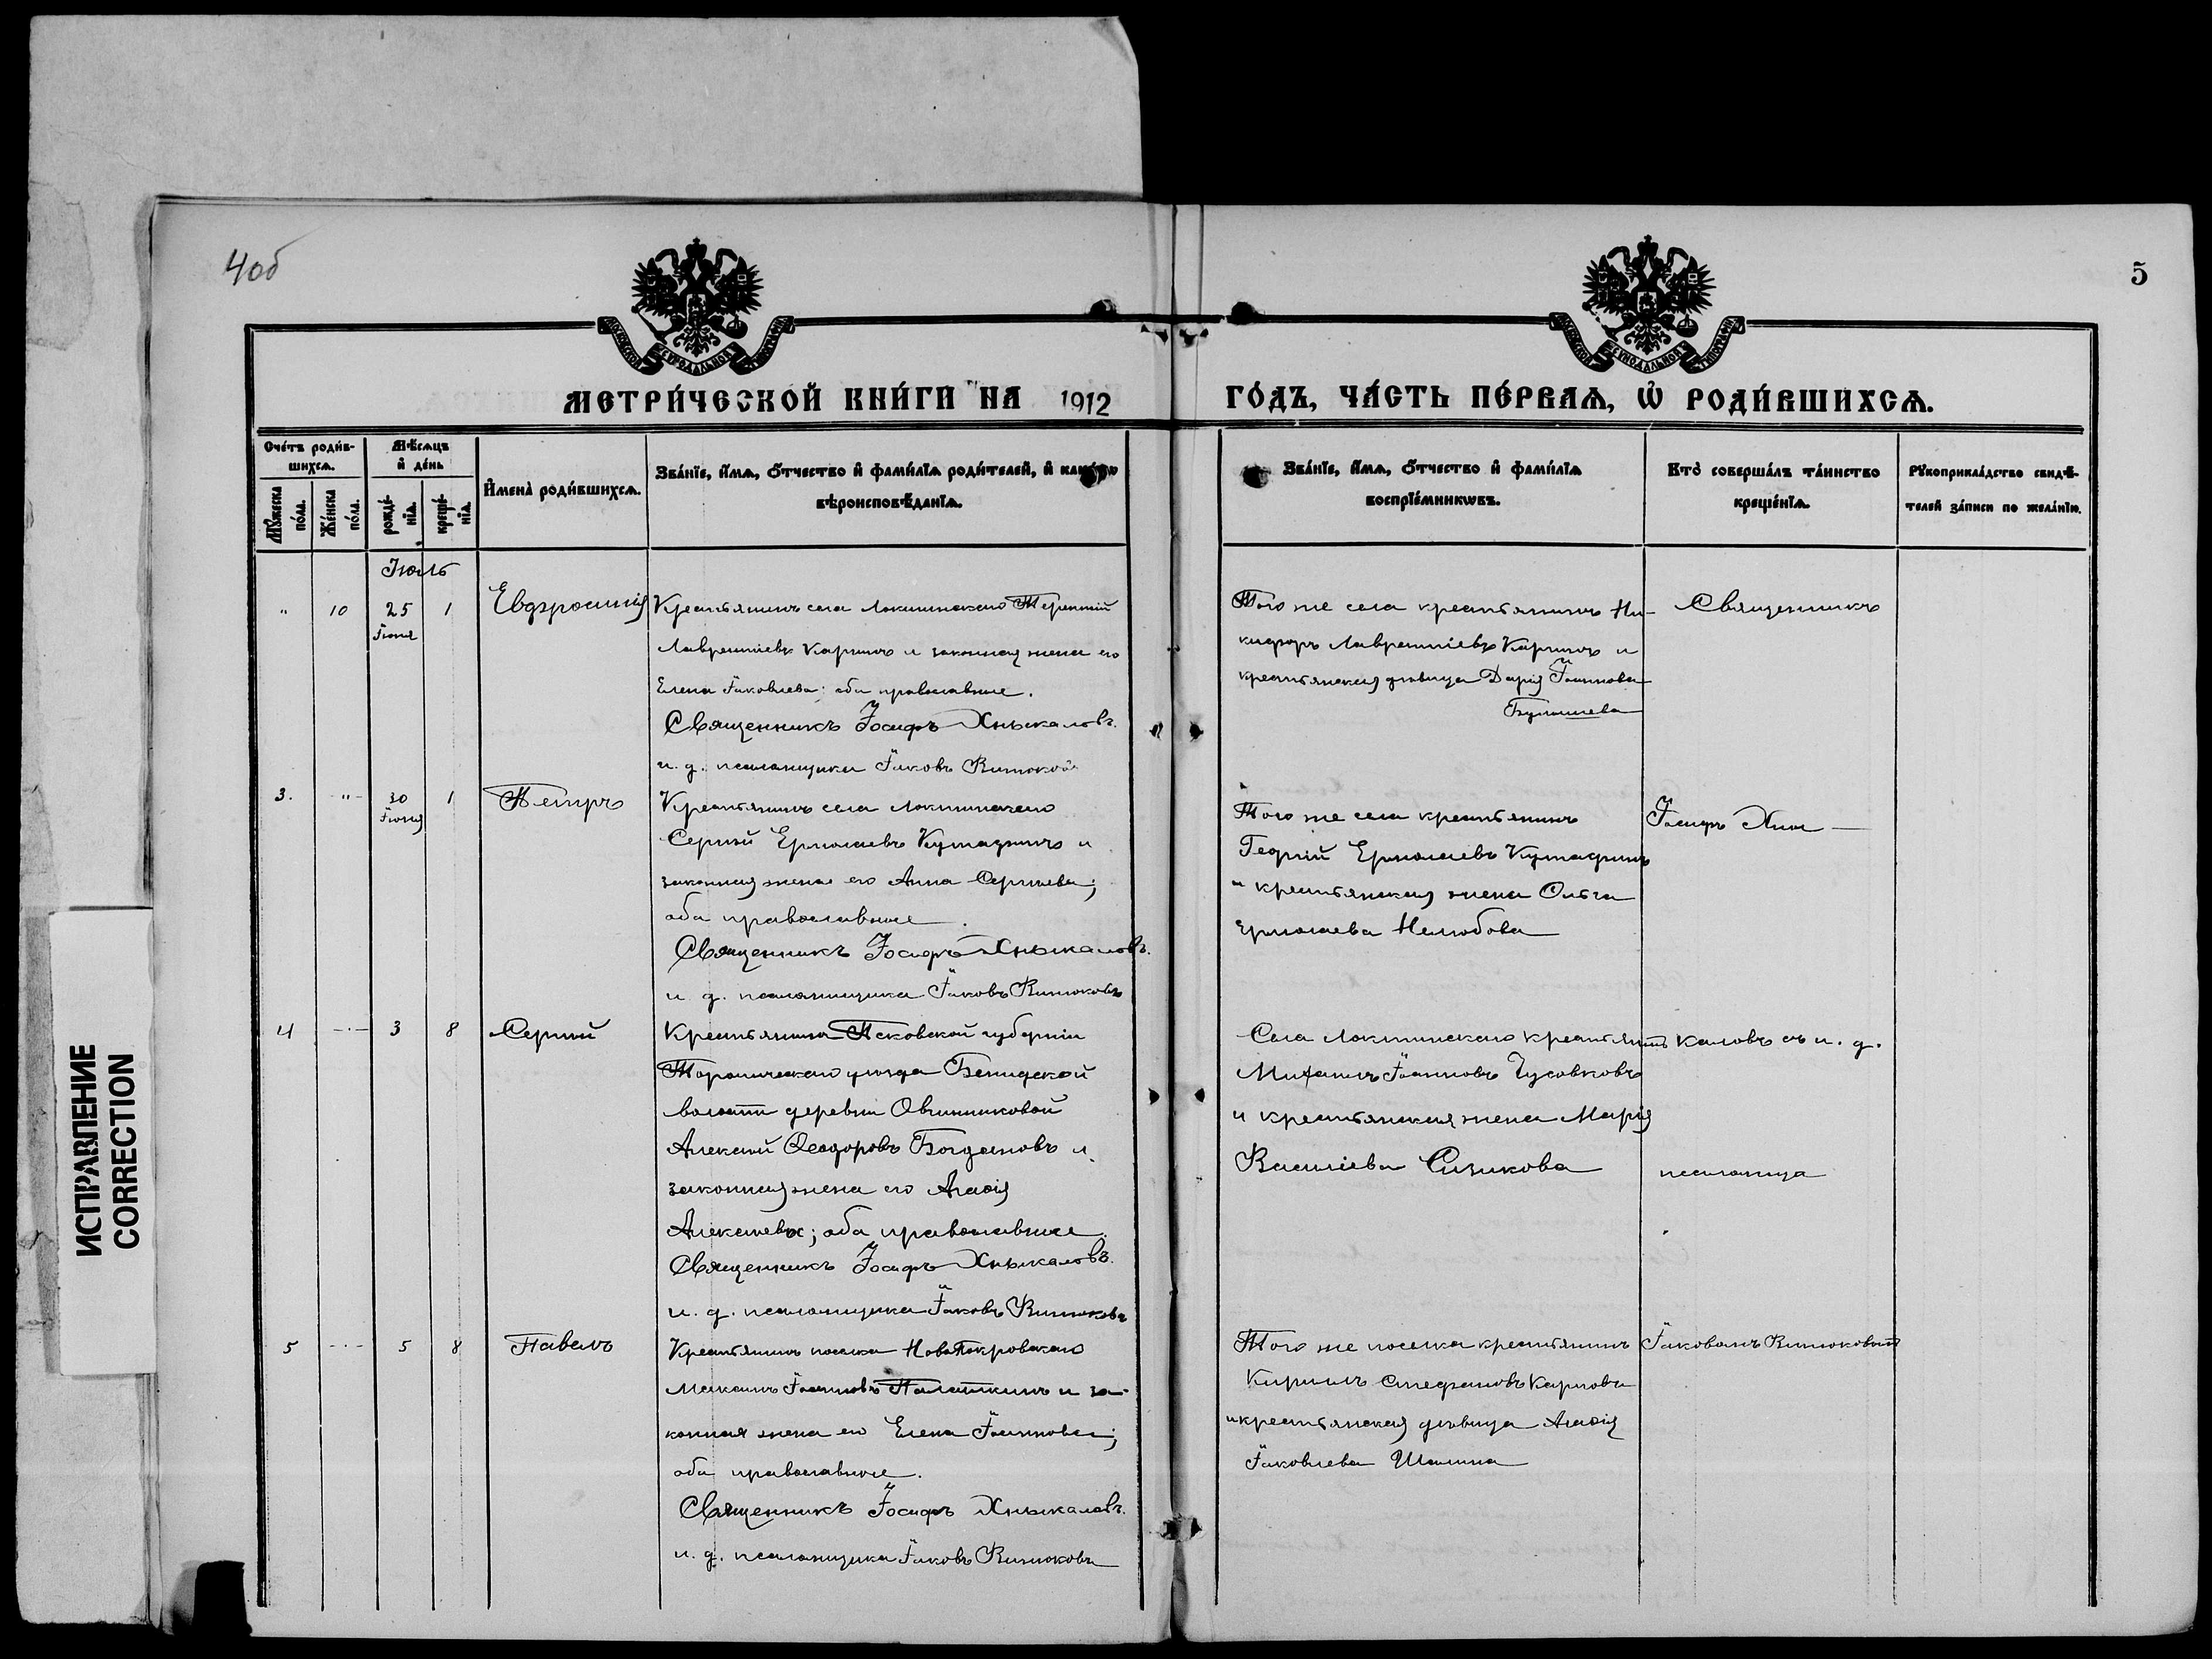 4об
5
МОСКОВСКОЙ СѴНОДАЛЬНОЙ ТИПОГРАФІИ
МОСКОВСКОЙ СѴНОДАЛЬНОЙ ТИПОГРАФІИ
МЕТРИ́ЧЕСКОЙ КНИ́ГИ НА 1912 ГО́ДЪ, ЧА́СТЬ ПЕ́РВАѦ, Ѡ҆ РОДИ́ВШИХСѦ.
Сче́тъ роди́в-
шихсѧ.
Мꙋ́жеска по́ла.
Же́нска по́ла.
Мѣ́сѧцъ
и҆ де́нь
рожде́-
нїѧ.
креще́-
нїѧ.
И҆мена̀ роди́вшихсѧ.
Зва́нїе, и҆́мѧ, ѻ҆́тчество и҆ фами́лїѧ роди́телей, и҆
вѣроисповѣ́данїѧ.
Зва́нїе, и҆́мѧ, ѻ҆́тчество и҆ фами́лїѧ
воспрїе́мникѡвъ.
Кто̀ соверша́лъ та́инство
креще́нїѧ.
Рꙋкоприкла́дство свидѣ́-
телей за́писи по жела́нїю.
Іюль
" 10 25 1 Евфросинія
Іюня
Крестьянинъ села Локтинскаго Терентій
Лаврентіевъ Каринъ и законная жена его
Елена Іаковлева; оба православные.
Священникъ Іосифъ Хныкаловъ.
и. д. псаломщика Іаковъ
Того же села крестьянинъ Ни-
кифоръ Лаврентіевъ Каринъ и
крестьянская дѣвица Дарія Іоаннова
Священникъ
3. " 30 1 Петръ
Іюня
Крестьянинъ села Локтинскаго
Сергій Ермолаевъ и
законная жена его Анна Сергіева;
оба православные.
Священникъ Іосифъ Хныкаловъ.
и. д. псаломщика Іаковъ
Того же села крестьянинъ
Георгій Ермолаевъ
и крестьянская жена Ольга
Ермолаева Нелюбова
Іосифъ Хны—
4 -"- 3 8 Сергій
Крестьянинъ Псковской губерніи
Торопецкаго уѣзда
волости деревни Овчинниковой
Алексій Ѳеодоровъ Богдановъ и
законная жена его Агаѳія
Алексіева; оба православные.
Священникъ Іосифъ Хныкаловъ.
и. д. псаломщика Іаковъ
Села Локтинскаго крестьянинъ
Михаилъ Іоанновъ Чусовковъ
и крестьянская жена Марія
Василіева Сизикова
каловъ съ и. д.
псаломща
5 -"- 5 8 Павелъ
Крестьянинъ поселка НовоПокровскаго
Максимъ Іоанновъ Палаткинъ и за-
конная жена его Елена Іоаннова;
оба православные.
Священникъ Іосифъ Хныкаловъ.
и. д. псаломщика Іаковъ
Того же поселка крестьянинъ
Кириллъ Стефановъ Карпова
и крестьянская дѣвица Агаѳія
Іаковлева Шалина
Іаковомъ
ИСПРАВЛЕНИЕ
CORRECTION